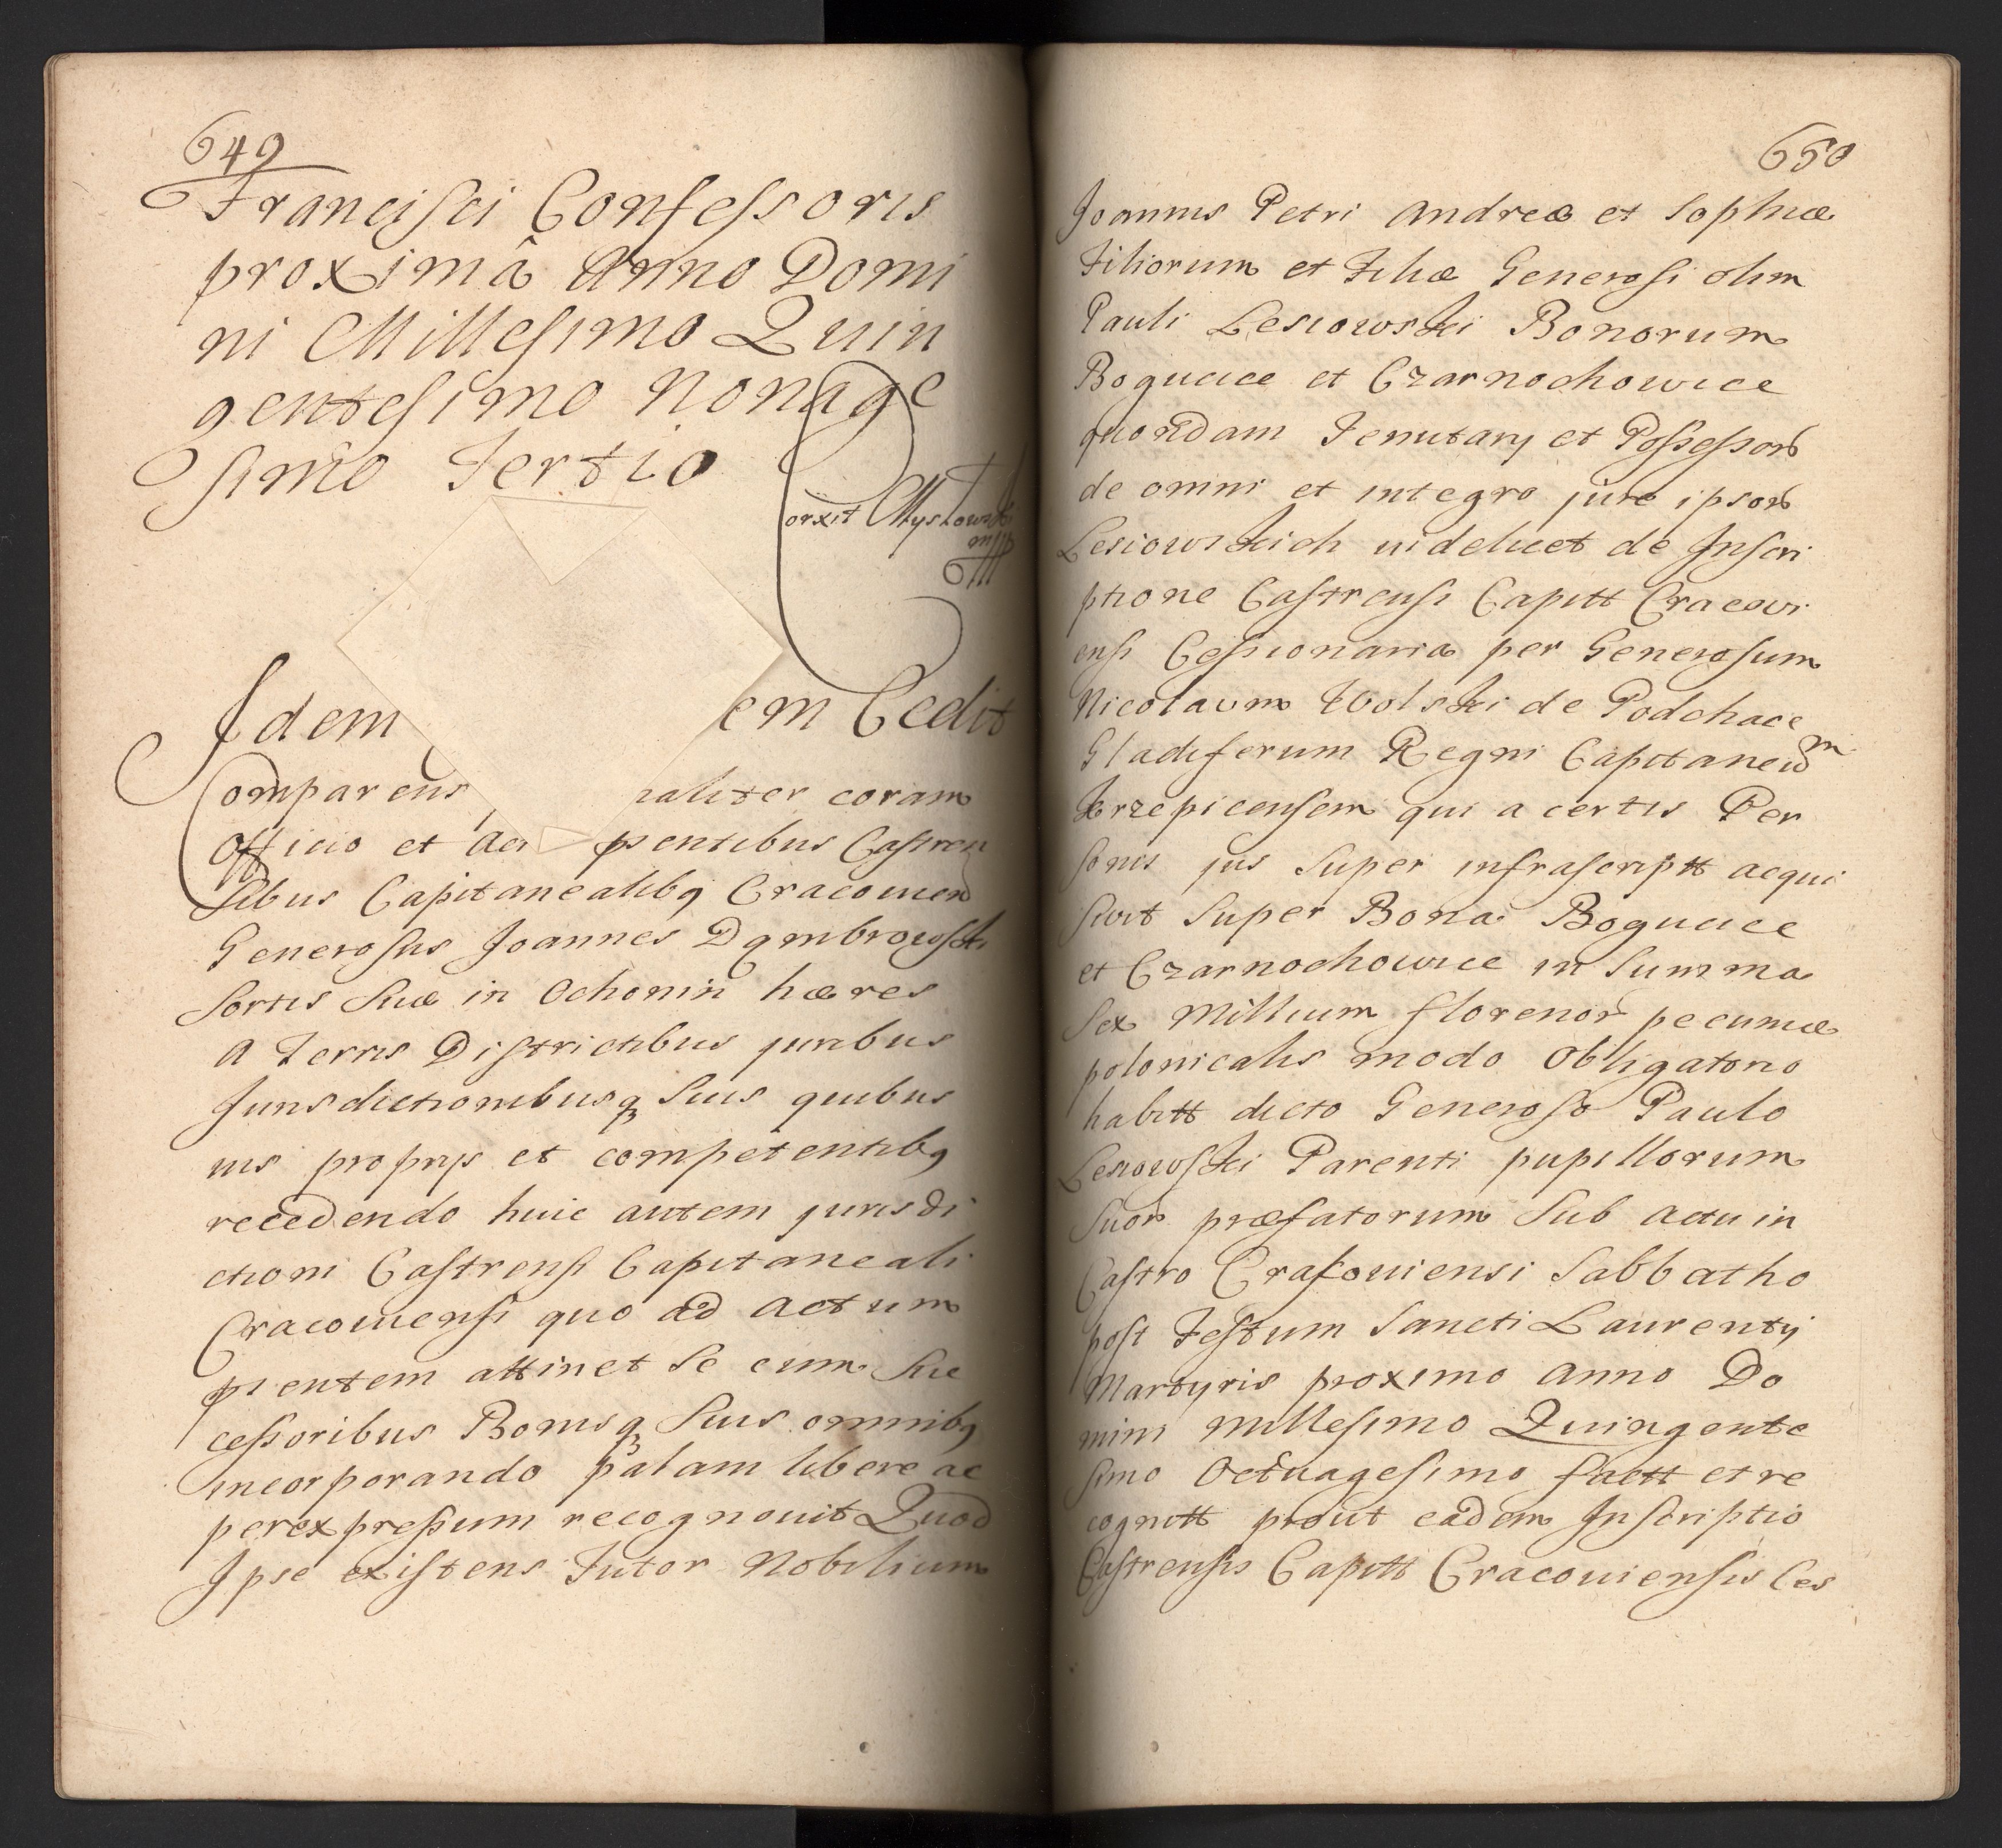 649
Francisci Confessoris
proximâ Anno Domi
ni Millesimo Quin
gentesimo Nonage
simo Tertio
orxit
Idem em Cedit
Comparens naliter coram
Officio et Act pntibus Castren
sibus Capitanealibq Cracovien
Generosus Joannes Dąmbrowski
Sortis Suæ in Ochonin hæres
a Terris Districtibus juribus
Jurisdictionibusq Suis quibus
vis proprijs et competentibq
recedendo huic autem jurisdi
ctioni Castrensi Capitaneali
Cracoviensi quo ad actum
pntem attinet Se cum Suc
cessoribus Bonisq Suis omnibq
incorporando palam libere ac
perexpressum recognouit Quod
Ipse existens Tutor Nobilium
650
Joannis Petri Andreæ et Sophiæ
Filiorum et Filiæ Generosi olim
Pauli Lesiowski Bonorum
Bogucice et Czarnochowice
quondam Tenutarij et Possessor
de omni et integro jure ipsor
Lesiowskich videlicet de Inscri
ptione Castrensi Capitt Cracovi
ensi Cessionaria per Generosum
Nicolaum Wolski de Podchace
Gladiferum Regni Capitaneum
Krzepicensem qui a certis Per
sonis jus Super infrascriptt acqui
sivit Super Bona Bogucice
et Czarnochowice in Summa
Sex Millium florenor pecuniæ
polonicalis modo Obligatorio
habitt dicto Generoso Paulo
Lesiowski Parenti pupillorum
Suor præfatorum Sub actu in
Castro Crakoviensi Sabbatho
post Festum Sancti Laurentij
Martyris proximo Anno Do
mini Millesimo Quingente
simo Octuagesimo factt et re
cognitt prout eadem Inscriptio
Castrensis Capitt Cracoviensis Ces